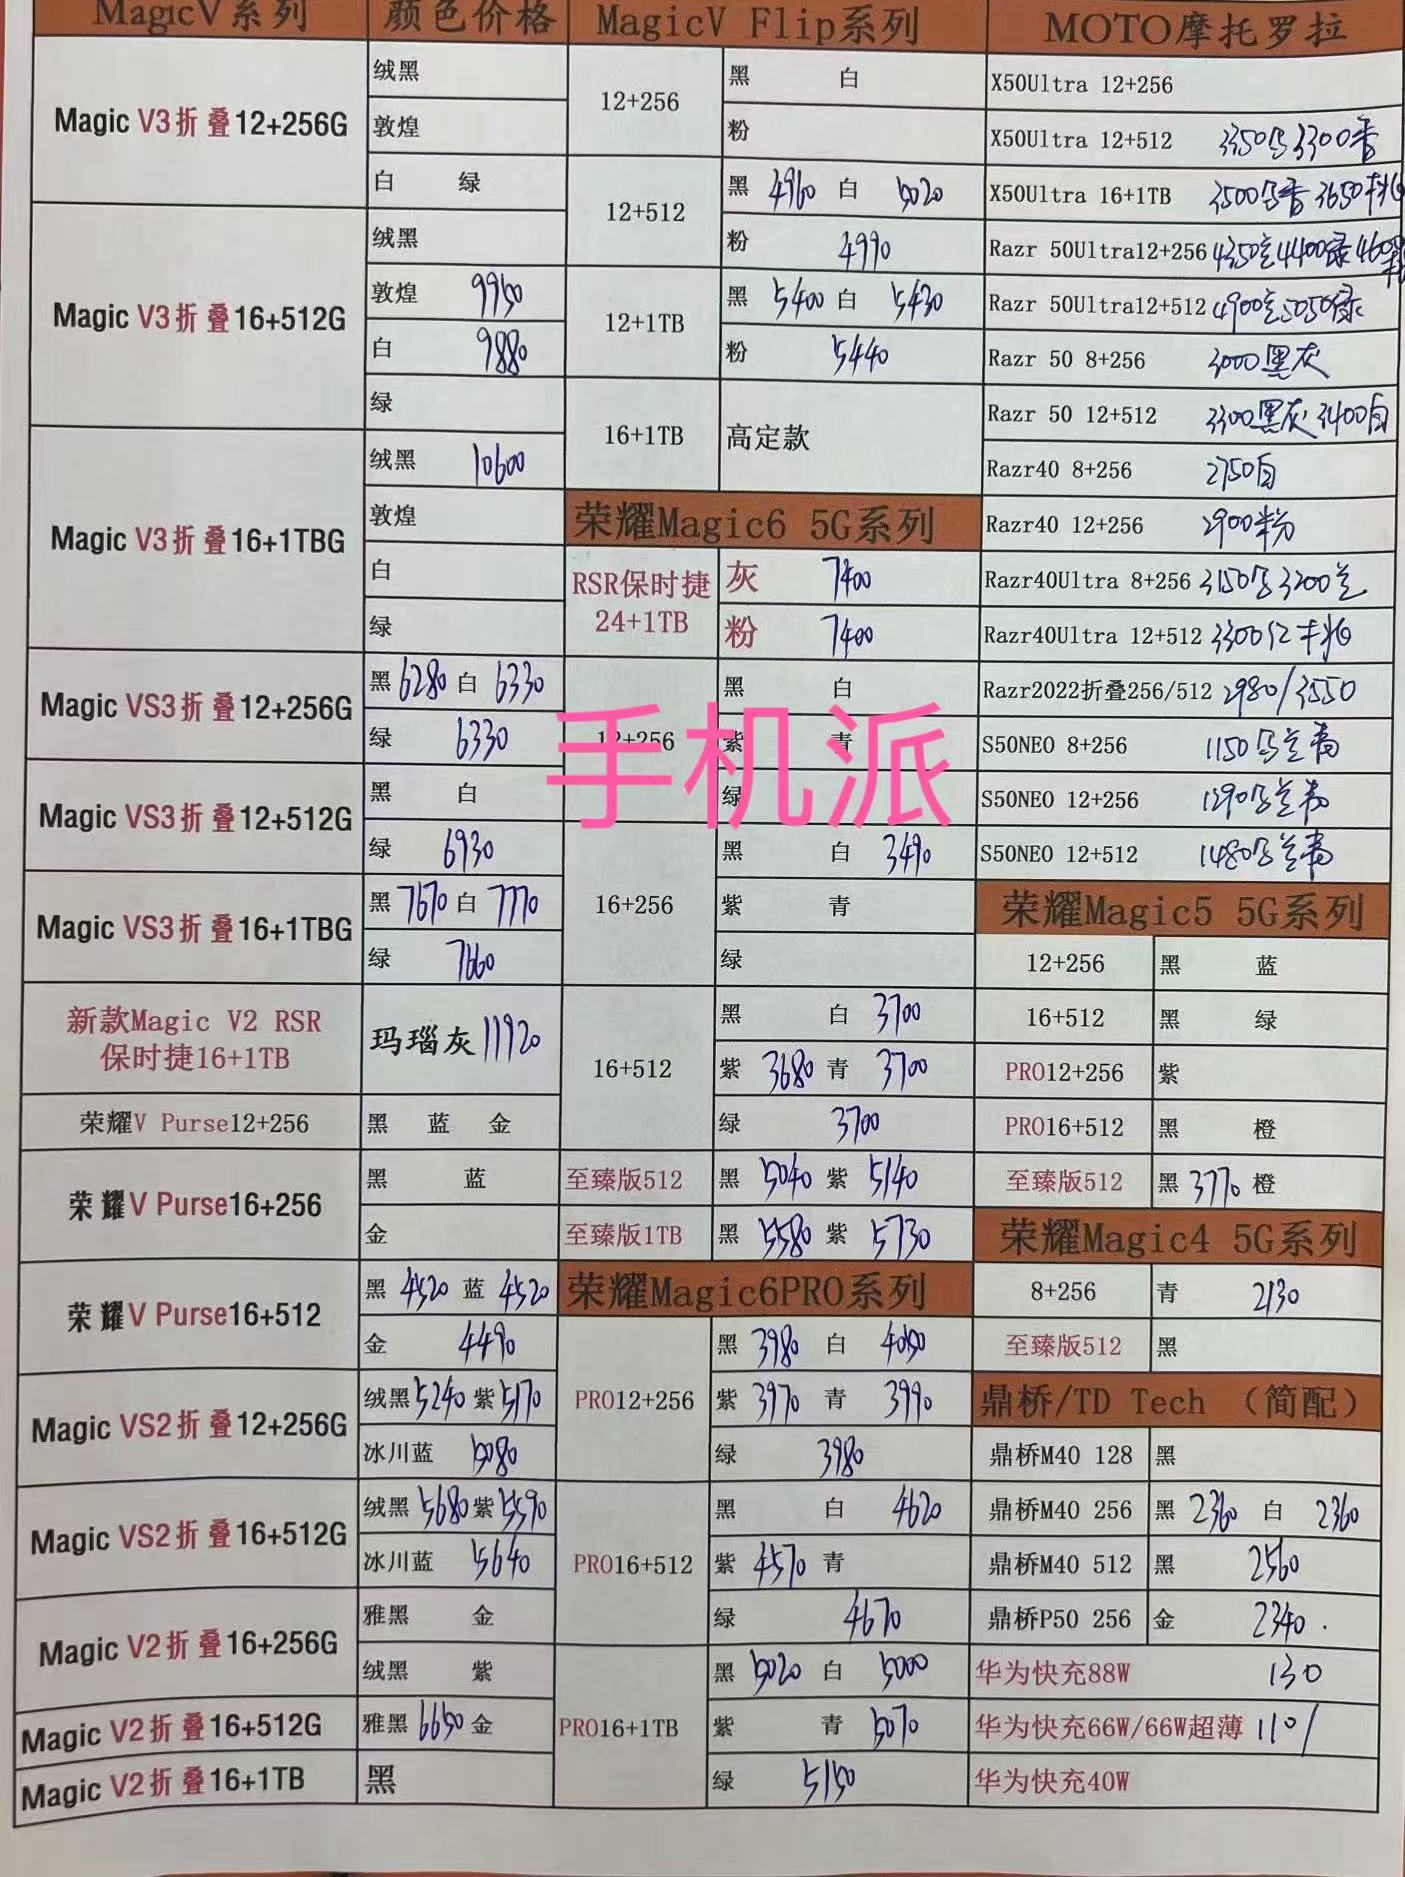 MagicV系列 颜色价格
Magic V3折叠12+256G
绒黑
敦煌
白 绿
Magic V3折叠16+512G
绒黑
敦煌 9950
白 9880
绿
Magic V3折叠16+1TBG
绒黑 10600
敦煌
白
绿
Magic VS3折叠12+256G
黑6280 白 6330
绿 6330
Magic VS3折叠12+512G
黑 白
绿 6930
Magic VS3折叠16+1TBG
黑7670 白 7770
绿 7660
新款Magic V2 RSR
保时捷16+1TB
玛瑙灰11920
荣耀V Purse12+256
黑 蓝 金
荣耀V Purse16+256
黑 蓝
金
荣耀V Purse16+512
黑 4520 蓝 4520
金 4490
Magic VS2折叠12+256G
绒黑5240 紫5170
冰川蓝 5080
Magic VS2折叠16+512G
绒黑5680 紫5590
冰川蓝 5640
Magic V2折叠16+256G
雅黑 金
绒黑 紫
Magic V2折叠16+512G
雅黑 6650 金
Magic V2折叠16+1TB
黑
MagicV Flip系列
12+256
黑 白
粉
12+512
黑 4960 白 5020
粉 4990
12+1TB
黑 5400 白 5430
粉 5440
16+1TB
高定款
荣耀Magic6 5G系列
RSR保时捷
24+1TB
灰 7400
粉 7400
12+256
黑 白
紫 青
绿
16+256
黑 白 3490
紫 青
绿
16+512
黑 白 3700
紫 3680 青 3700
绿 3700
至臻版512
黑 5040 紫 5140
至臻版1TB
黑 5580 紫 5730
荣耀Magic6PRO系列
PRO12+256
黑 3980 白 4050
紫 3970 青 3990
绿 3980
PRO16+512
黑 白 4620
紫 4570 青
绿 4670
PRO16+1TB
黑 5020 白 5000
紫 青 5070
绿 5150
MOTO摩托罗拉
X50Ultra 12+256
X50Ultra 12+512 3350 3300
X50Ultra 16+1TB 3500 3650
Razr 50Ultra12+256 4350 4400绿
Razr 50Ultra12+512 4900 5050绿
Razr 50 8+256 3000黑灰
Razr 50 12+512 3300黑灰 3400白
Razr40 8+256 2750白
Razr40 12+256 2900粉
Razr40Ultra 8+256 3150 3200兰
Razr40Ultra 12+512 3300红
Razr2022折叠256/512 2980/3550
S50NEO 8+256 1150 兰
S50NEO 12+256 1290 兰
S50NEO 12+512 1480 兰
荣耀Magic5 5G系列
12+256 黑 蓝
16+512 黑 绿
PRO12+256 紫
PRO16+512 黑 橙
至臻版512 黑 3770 橙
荣耀Magic4 5G系列
8+256 青 2130
至臻版512 黑
鼎桥/TD Tech （简配）
鼎桥M40 128 黑
鼎桥M40 256 黑 2360 白 2360
鼎桥M40 512 黑 2560
鼎桥P50 256 金 2340.
华为快充88W 130
华为快充66W/66W超薄 110/
华为快充40W
手机派